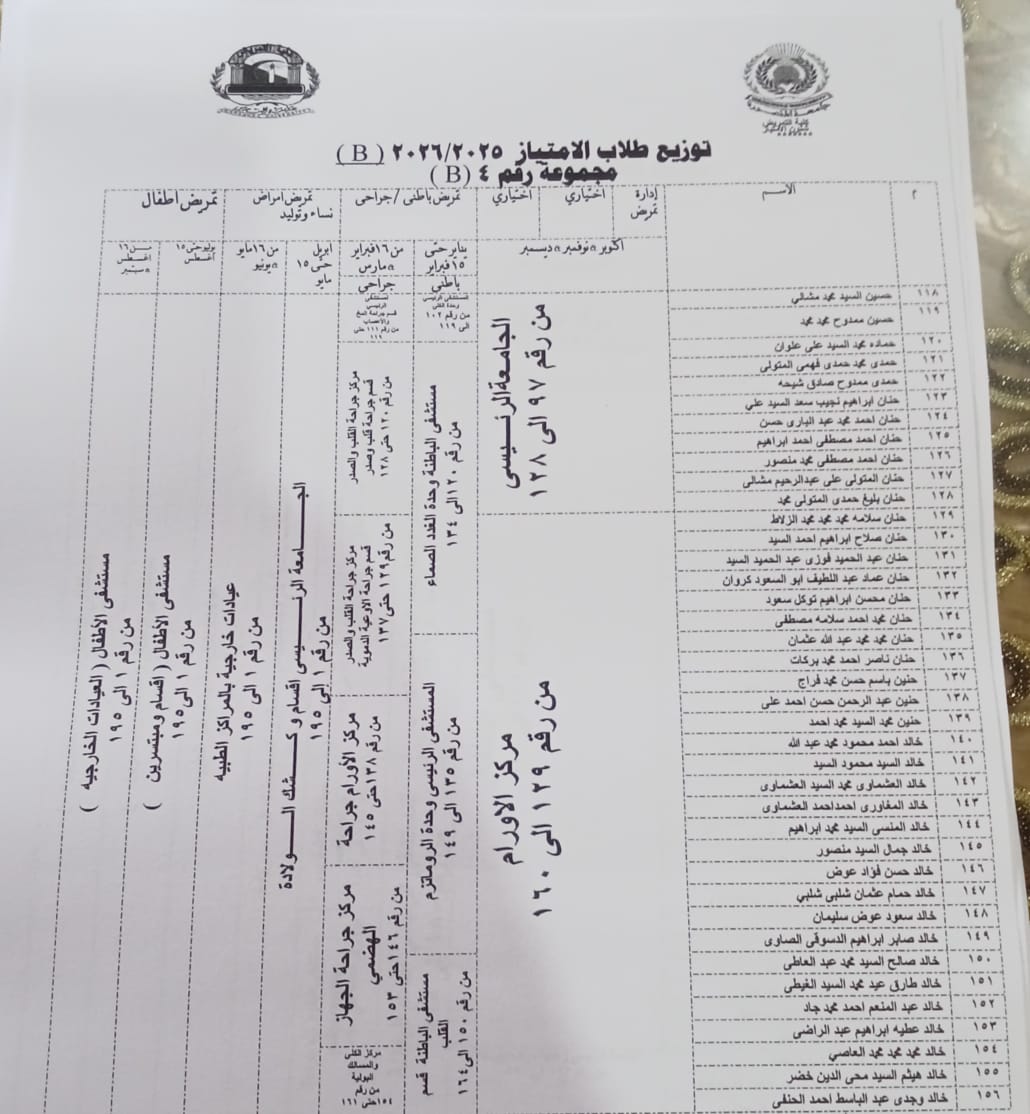 جامعة المنصورة
كلية التمريض
توزيع طلاب الامتياز ٢٠٢٦/٢٠٢٥ ( B )
مجموعة رقم ٤ (B )
م
الاسم
إدارة تمريض
اختياري
اختياري
تمريض باطنى / جراحى
تمريض امراض نساء وتوليد
تمريض اطفال
اكتوبر n نوفمبر n ديسمبر
يناير حتى ١٥ فبراير
من ١٦ فبراير n مارس
ابريل حتى ١٥ مايو
من ١٦ مايو n يونيو
يوليو حتى ١٥ اغسطس
من ١٦ اغسطس n سبتمبر
باطني
جراحي
١١٨ حسين السيد محمد مشالي
١١٩ حسين ممدوح محمد محمد
١٢٠ حماده محمد السيد على علوان
١٢١ حمدى محمد حمدى فهمى المتولى
١٢٢ حمدى ممدوح صادق شيحه
١٢٣ حنان ابراهيم نجيب سعد السيد علي
١٢٤ حنان احمد محمد عبد البارى حسن
١٢٥ حنان احمد مصطفى احمد ابراهيم
١٢٦ حنان احمد مصطفى محمد منصور
١٢٧ حنان المتولى على عبدالرحيم مشالى
١٢٨ حنان بليغ حمدى المتولى محمد
١٢٩ حنان سلامه محمد محمد محمد الزلاط
١٣٠ حنان صلاح ابراهيم احمد السيد
١٣١ حنان عبد الحميد فوزى عبد الحميد السيد
١٣٢ حنان عماد عبد اللطيف ابو السعود كروان
١٣٣ حنان محسن ابراهيم توكل سعود
١٣٤ حنان محمد احمد سلامه مصطفى
١٣٥ حنان محمد محمد عبد الله عثمان
١٣٦ حنان ناصر احمد محمد بركات
١٣٧ حنين باسم حسن محمد فراج
١٣٨ حنين عبد الرحمن حسن احمد على
١٣٩ حنين محمد السيد محمد احمد
١٤٠ خالد احمد محمود محمد عبد الله
١٤١ خالد السيد محمود السيد
١٤٢ خالد العشماوى محمد السيد العشماوى
١٤٣ خالد المغاورى احمداحمد العشماوى
١٤٤ خالد المنسى السيد محمد ابراهيم
١٤٥ خالد جمال السيد منصور
١٤٦ خالد حسن فؤاد عوض
١٤٧ خالد حمام عثمان شلبى شلبي
١٤٨ خالد سعود عوض سليمان
١٤٩ خالد صابر ابراهيم الدسوقى الصاوى
١٥٠ خالد صالح السيد محمد عبد العاطى
١٥١ خالد طارق عيد محمد السيد الغيطى
١٥٢ خالد عبد المنعم احمد محمد جاد
١٥٣ خالد عطيه ابراهيم عبد الراضى
١٥٤ خالد محمد محمد محمد العاصي
١٥٥ خالد هيثم السيد محى الدين خضر
١٥٦ خالد وجدى عبد الباسط احمد الحنفى
الجامعة الرئيسى
من رقم ٩٧ الى ١٢٨
مركز الاورام
من رقم ١٢٩ الى ١٦٠
المستشفى الرئيسي
وحدة الكلي
من رقم ١٠٢
الى ١١٩
مستشفى الباطنة وحدة الغدد الصماء
من رقم ١٢٠ الى ١٣٤
المستشفى الرئيسى وحدة الروماتزم
من رقم ١٣٥ الى ١٤٩
مستشفى الباطنة قسم القلب
من رقم ١٥٠ الى ١٦٤
المستشفى
الرئيسي
قسم جراحة المخ
والأعصاب
من رقم ١١١ حتى
١١٩
مركز جراحة القلب والصدر
قسم جراحة قلب وصدر
من رقم ١٢٠ حتى ١٢٨
مركز جراحة القلب والصدر
قسم جراحة الاوعية الدموية
من رقم ١٢٩ حتى ١٣٧
مركز الأورام جراحة
من رقم ١٣٨ حتى ١٤٥
مركز جراحة الجهاز الهضمي
من رقم ١٤٦ حتى ١٥٣
الجـــامعة الرئـــيسى اقسام و كـــشك الـــولادة
من رقم ١ الى ١٩٥
عيادات خارجية بالمراكز الطبيه
من رقم ١ الى ١٩٥
مستشفى الأطفال ( اقسام ومبتسرين )
من رقم ١ الى ١٩٥
مستشفى الأطفال ( العيادات الخارجيه )
من رقم ١ الى ١٩٥